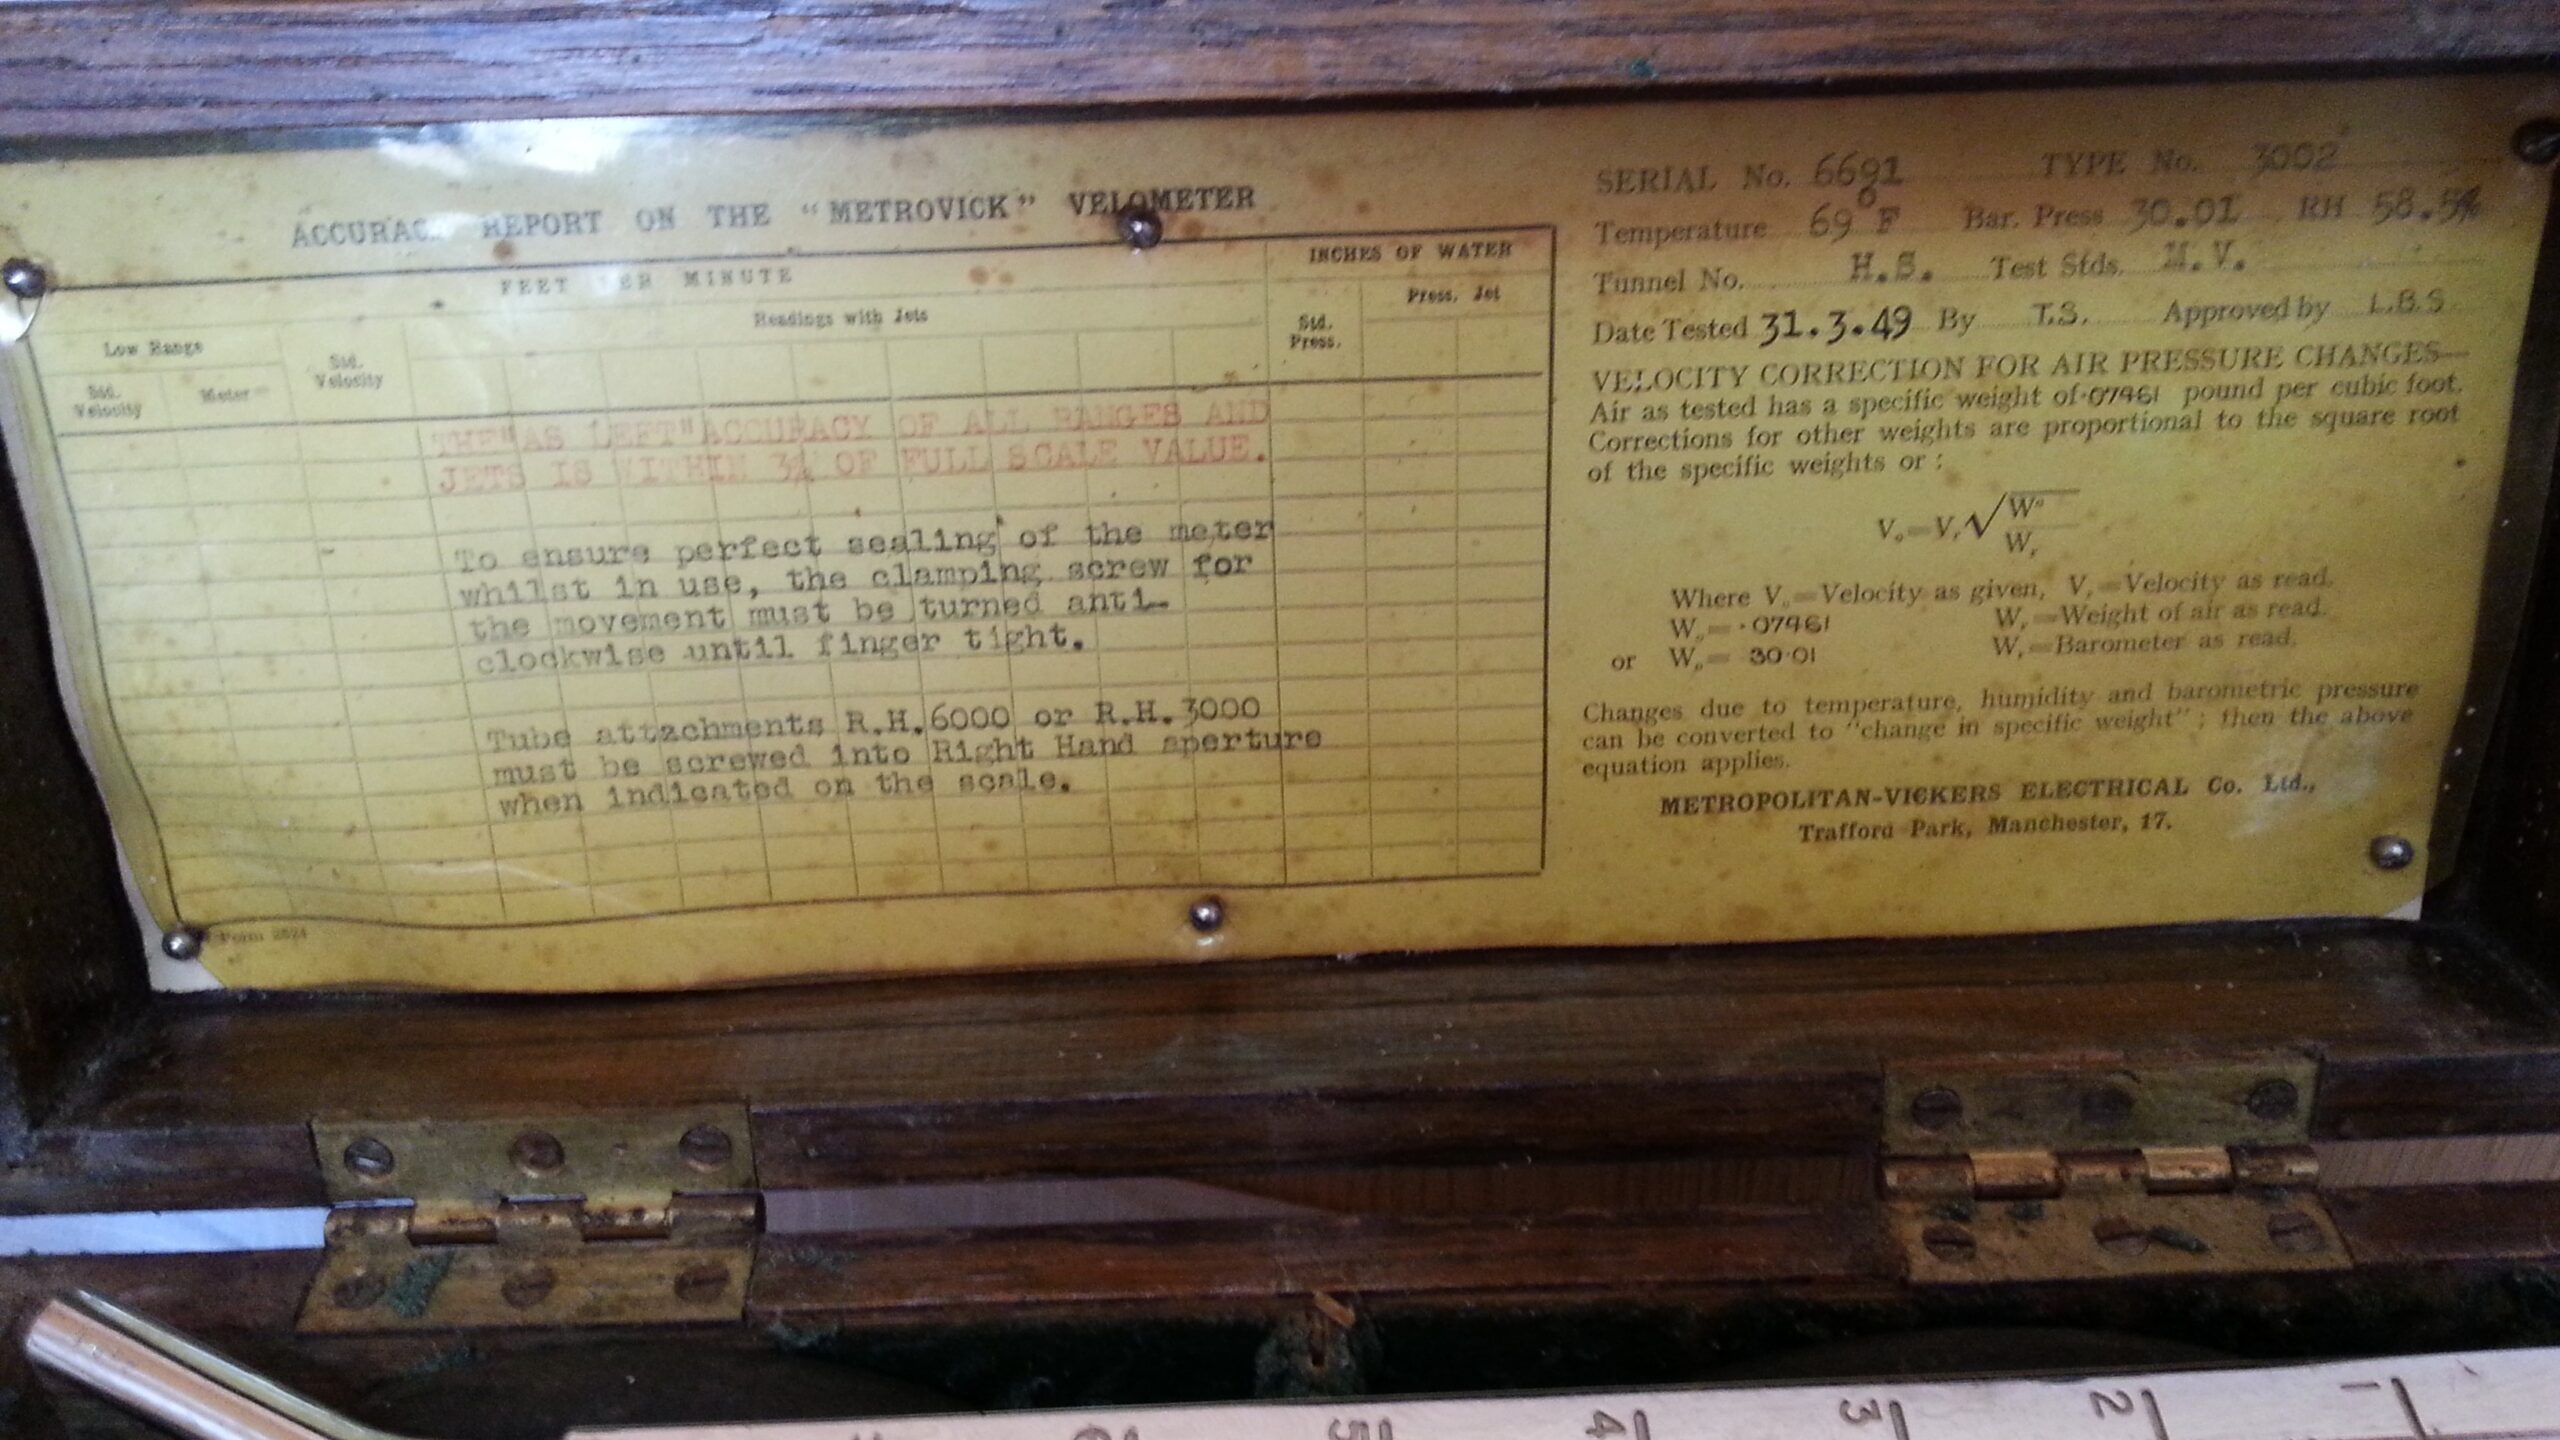 ACCURAC REPORT ON THE "METROVICK" VELOMETER
FEET PER MINUTE
INCHES OF WATER
Low Range
Std. Velocity
Readings with Jets
Std. Press.
Press. Jet
Std. Velocity
Meter
THE "AS LEFT" ACCURACY OF ALL RANGES AND
JETS IS WITHIN 3% OF FULL SCALE VALUE.
To ensure perfect sealing of the meter
whilst in use, the clamping screw for
the movement must be turned anti-
clockwise until finger tight.
Tube attachments R.H.6000 or R.H.3000
must be screwed into Right Hand aperture
when indicated on the scale.
Form 2624
SERIAL No. 6691 TYPE No. 3002
Temperature 69°F Bar. Press 30.01 RH 58.5%
Tunnel No. H.S. Test Stds. M.V.
Date Tested 31.3.49 By T.S. Approved by L.B.S
VELOCITY CORRECTION FOR AIR PRESSURE CHANGES—
Air as tested has a specific weight of ·07461 pound per cubic foot.
Corrections for other weights are proportional to the square root
of the specific weights or :
Vₒ=Vᵣ√Wₒ/Wᵣ
Where Vₒ=Velocity as given, Vᵣ=Velocity as read.
Wₒ= ·07461 Wᵣ=Weight of air as read.
or Wₒ= 30·01 Wᵣ=Barometer as read.
Changes due to temperature, humidity and barometric pressure
can be converted to "change in specific weight" ; then the above
equation applies.
METROPOLITAN-VICKERS ELECTRICAL Co. Ltd.,
Trafford Park, Manchester, 17.
6 5 4 3 2 1